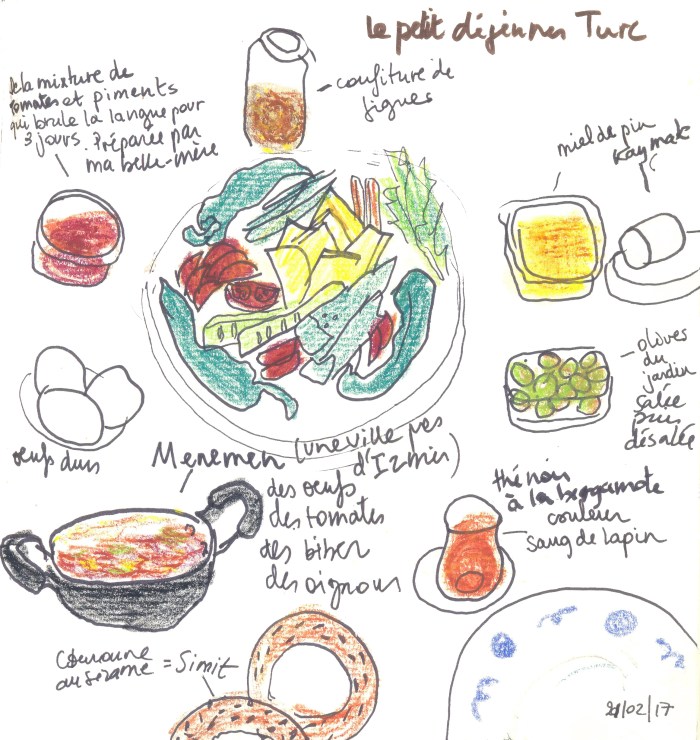 Le petit déjeuner Turc
de la mixture de
tomates et piments
qui brule la langue pour
3 jours. Préparée par
ma belle-mère
confiture de
figues
miel de pin
kaymak
olives
du
jardin
salée
puis
désalée
oeufs durs
Menemen (une ville pas
d'Izmir)
des oeufs
des tomates
des biber
des oignons
thé noir
à la bergamote
couleur
sang de lapin
Couronne
au sézame = Simit
21/02/17